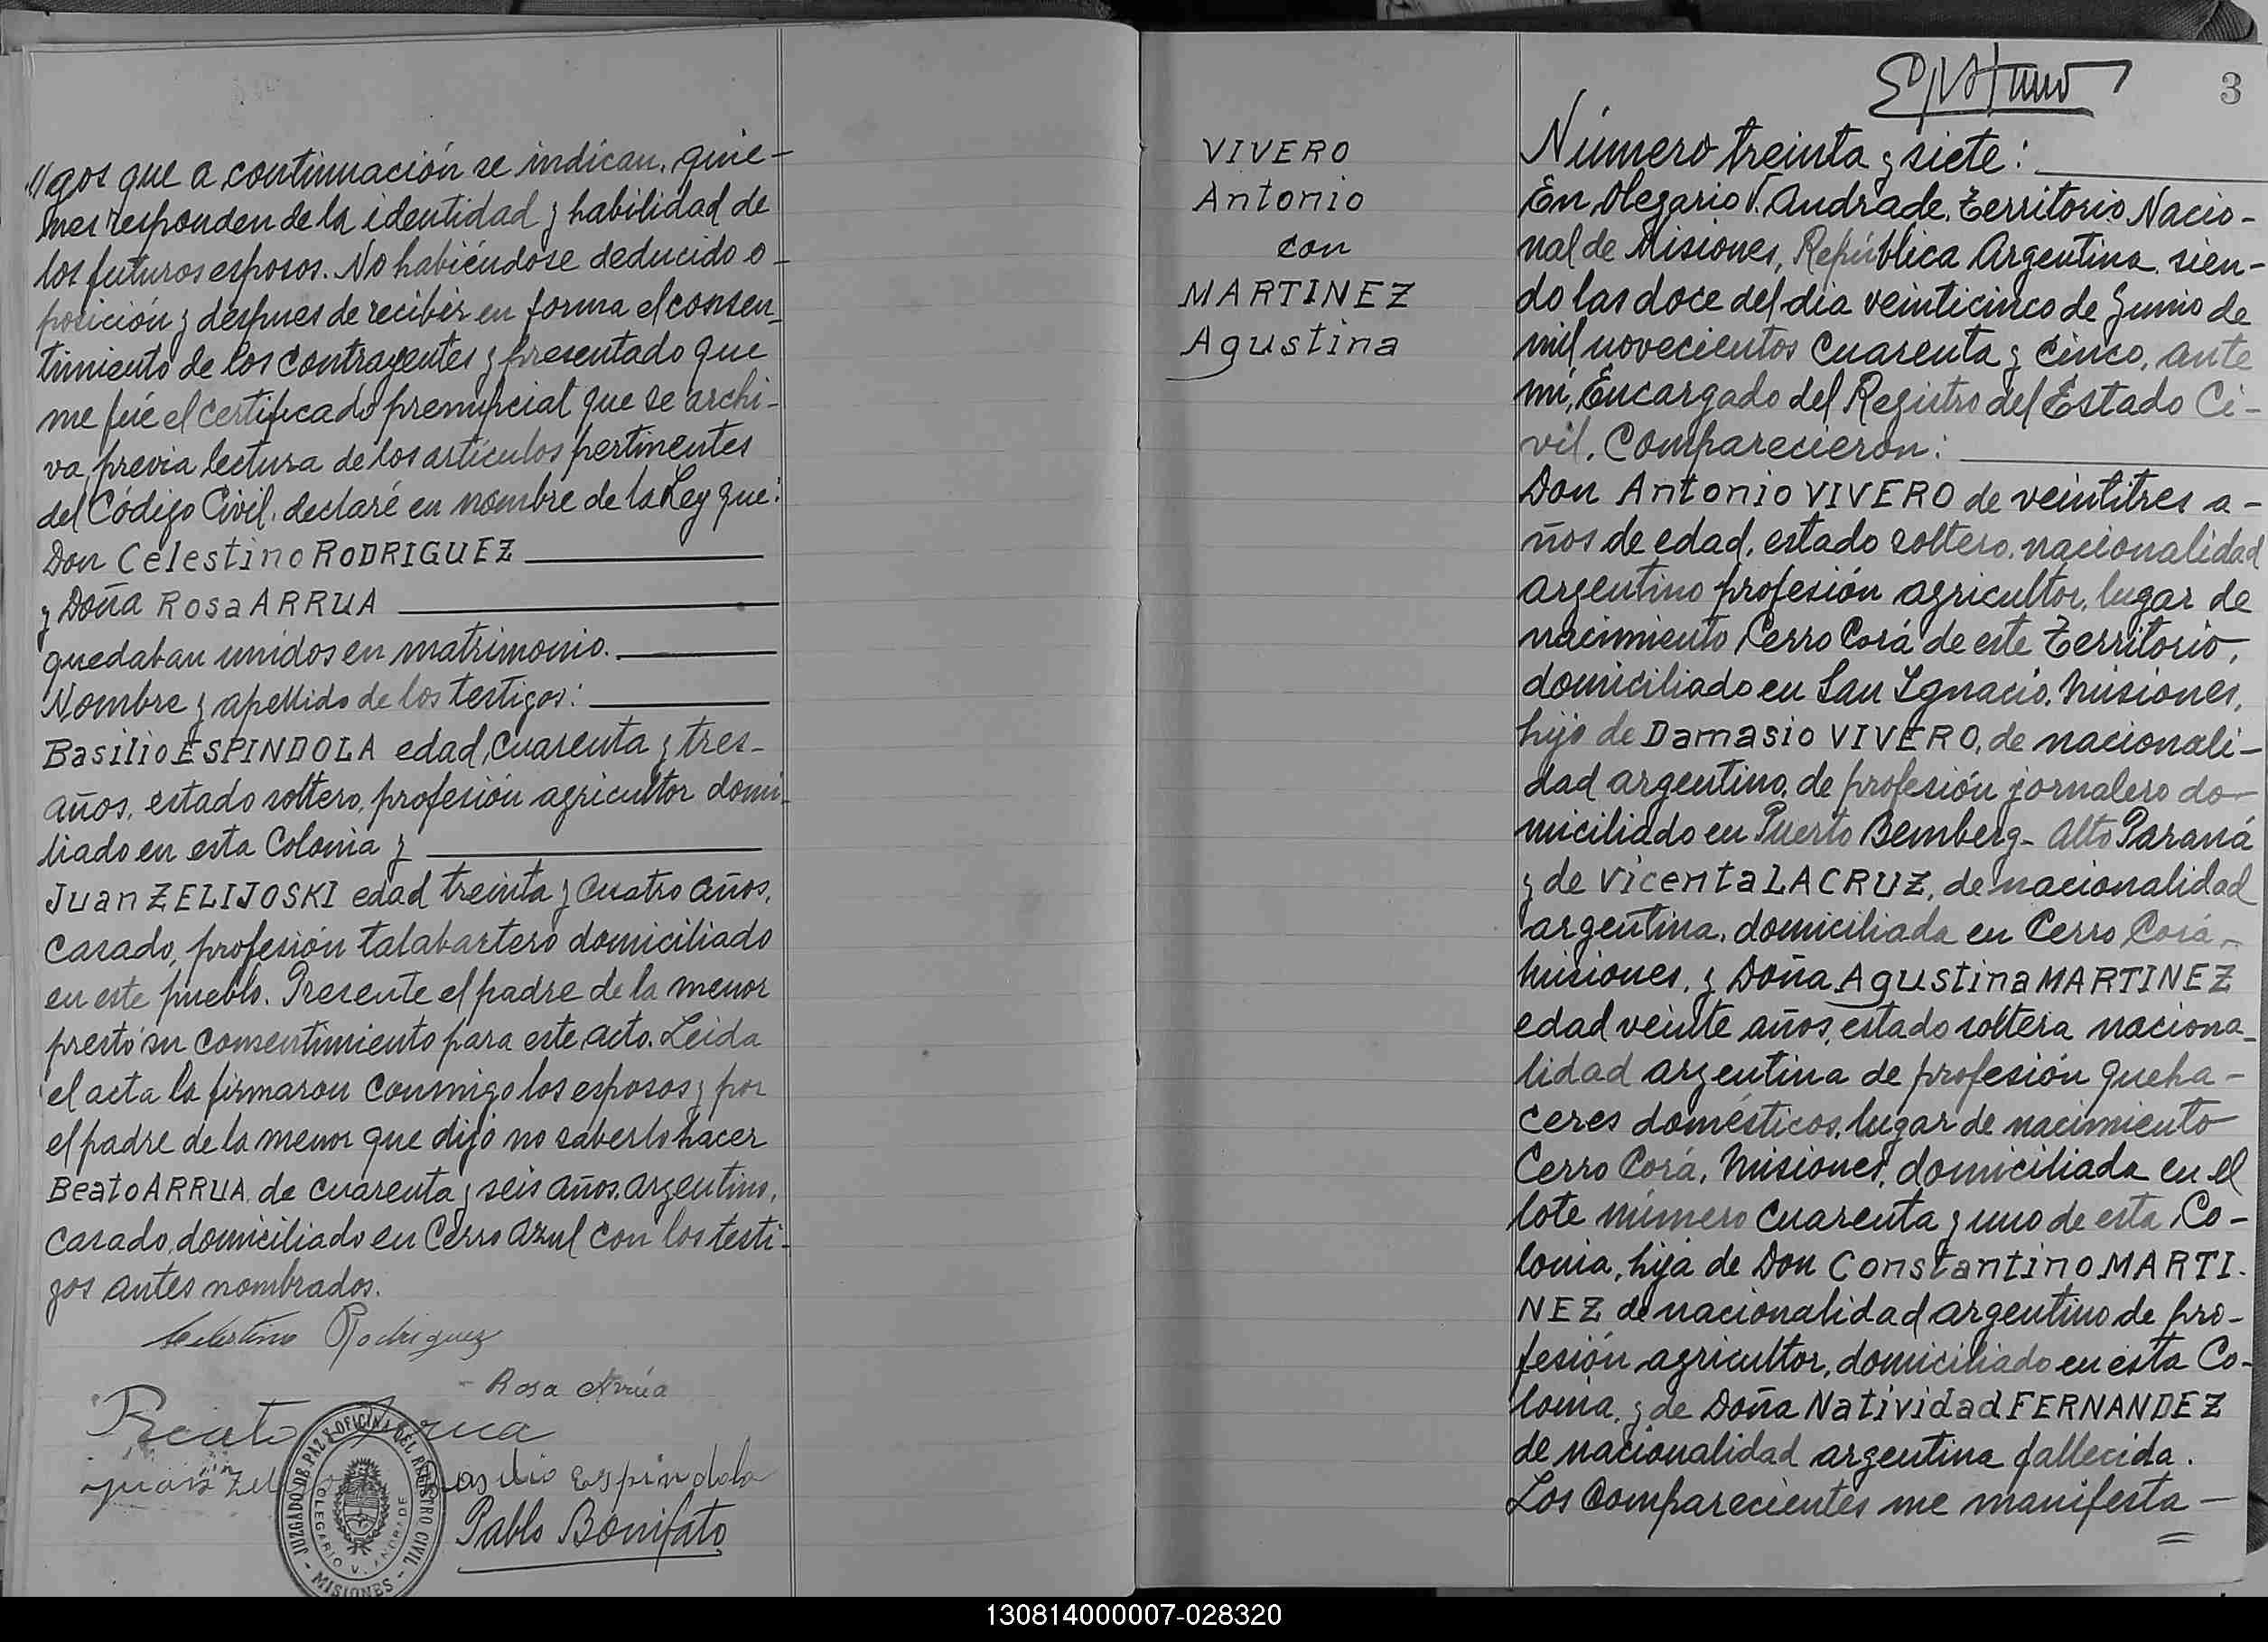 //gos que a continuación se indican, quie-
nes responden de la identidad y habilidad de
los futuros esposos. No habiéndose deducido o-
posición y despues de recibir en forma el consen-
timiento de los contrayentes y presentado que
me fué el certificado prenupcial que se archi-
va, previa lectura de los artículos pertinentes
del Código Civil, declaré en nombre de la Ley que:
Don Celestino RODRIGUEZ
y Doña Rosa ARRUA
quedaban unidos en matrimonio.
Nombre y apellido de los testigos:
Basilio ESPINDOLA edad, cuarenta y tres-
años, estado soltero, profesión agricultor domi-
liado en esta Colonia y
Juan ZELIJOSKI edad treinta y cuatro años,
casado, profesión talabartero domiciliado
en este pueblo. Presente el padre de la menor
prestó su consentimiento para este acto. Leida
el acta la firmaron conmigo los esposos y por
el padre de la menor que dijo no saberlo hacer
Beato ARRUA, de cuarenta y seis años, argentino,
casado, domiciliado en Cerro Azul con los testi-
gos antes nombrados.
Celestino Rodriguez
- Rosa Arrúa
Beato Arrua
Juan Basilio Espindola
Pablo Bonifato
JUZGADO DE PAZ Y OFICINA DEL REGISTRO CIVIL
OLEGARIO V. ANDRADE
- MISIONES -
3
VIVERO
Antonio
con
MARTINEZ
Agustina
Número treinta y siete:
En Olegario V. Andrade, Territorio Nacio-
nal de Misiones, República Argentina, sien-
do las doce del dia veinticinco de Junio de
mil novecientos cuarenta y cinco, ante
mi, Encargado del Registro del Estado Ci-
vil, Comparecieron:
Don Antonio VIVERO de veintitres a-
ños de edad, estado soltero, nacionalidad
argentino profesión agricultor, lugar de
nacimiento, Cerro Corá de este Territorio,
domiciliado en San Ignacio, Misiones,
hijo de Damasio VIVERO, de nacionali-
dad argentino, de profesión jornalero do-
miciliado en Puerto Bemberg- Alto Paraná
y de Vicenta LACRUZ, de nacionalidad
argentina, domiciliada en Cerro Corá-
Misiones, y Doña Agustina MARTINEZ
edad veinte años, estado soltera naciona-
lidad argentina de profesión queha-
ceres domésticos, lugar de nacimiento
Cerro Corá, Misiones, domiciliada en el
lote número cuarenta y uno de esta Co-
lonia, hija de Don Constantino MARTI-
NEZ de nacionalidad argentino de pro-
fesión agricultor, domiciliado en esta Co-
lonia, y de Doña Natividad FERNANDEZ
de nacionalidad argentina fallecida.
Los Comparecientes me manifesta-
130814000007-028320